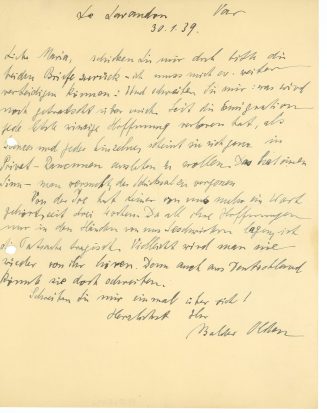 Le Lavandou Var
30.1.39.
Liebe Maria, schicken Sie mir doch bitte die
beiden Briefe zurück - ich muss mich ev. weiter
verteidigen können! Und schreiben Sie mir: was wird
noch getratscht über mich. Seit die Emigration
jede letzte einzige Hoffnung verloren hat, als
und jeder Einzelne scheint sich gern in
Privat- austoben zu wollen. Das hat einen
Sinn - man vermag die Schicksalen vergessen
Von der hat keiner von uns mehr ein Wort
gehört seit drei Wochen. Da all ihre Hoffnungen
nur in den Händen von uns lagen, ist
die Tatsache tragisch. Vielleicht wird man nie
wieder von ihr hören. Denn auch aus Deutschland
könnte sie doch schreiben.
Schreiben Sie mir einmal über sich!
Herzlichst Ihr
Balder Olden